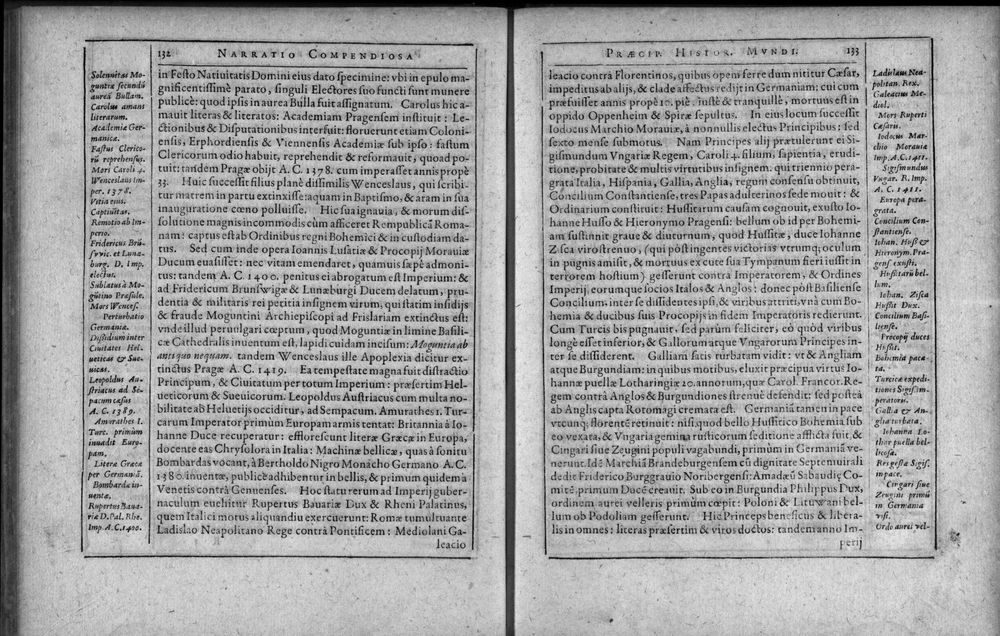 132 NARRATIO COMPENDIOSA
Solennitas Mo-
guntiæ secundũ
aureã Bullam.
Carolus amans
literarum.
Academiæ Ger-
manicæ.
Fastus Clerico-
rũ reprehensus.
Mors Caroli 4.
Wenceslaus Im-
per. 1378.
Vitia eius.
Captiuitas.
Remotio ab Im-
perio.
Fridericus Brũ-
suvic. et Luna-
burg. D. Imp.
electus.
Sublatus à Mo-
gũtino Præsule.
Mors Wences.
Perturbatio
Germaniæ.
Dissidium inter
Ciuitates Hel-
ueticas & Sue-
uicas.
Leopoldus Au-
striacus ad Sẽ-
pacum cæsus
A. C. 1389.
Amurathes I.
Turc. primùm
inuadit Euro-
pam.
Litera Græcæ
per Germaniã.
Bombarda in-
uenta.
Rupertus Baua-
riæ D. Pal. Rhe.
Imp. A. C. 1400.
in Festo Natiuitatis Domini eius dato specimine: vbi in epulo ma-
gnificentissimè parato, singuli Electores suo functi sunt munere
publicè: quod ipsis in aurea Bulla fuit assignatum. Carolus hic a-
mauit literas & literatos: Academiam Pragensem instituit: Le-
ctionibus & Disputationibus interfuit: floruerunt etiam Coloni-
ensis, Erphordiensis & Viennensis Academiæ sub ipso: fastum
Clericorum odio habuit, reprehendit & reformauit, quoad po-
tuit: tandem Pragæ obijt A. C. 1378. cum imperasset annis propè
33. Huic successit filius planè dissimilis Wenceslaus, qui scribi-
tur matrem in partu extinxisse: aquam in Baptismo, & aram in sua
inauguratione cœno polluisse. Hic sua ignauia, & morum dis-
solutione magnis incommodis cùm afficeret Rempublicã Roma-
nam: captus est ab Ordinibus regni Bohemici & in custodiam da-
tus. Sed cum inde opera Ioannis Lusatiæ & Procopij Morauiæ
Ducum euasisset: nec vitam emendaret, quamuis sæpè admoni-
tus: tandem A. C. 1400. penitus ei abrogatum est Imperium: &
ad Fridericum Brunswigæ & Lunæburgi Ducem delatum, pru-
dentia & militaris rei peritia insignem virum, qui statim insidijs
& fraude Moguntini Archiepiscopi ad Frislariam extinctus est:
vnde illud peruulgari cœptum, quod Moguntiæ in limine Basili-
cæ Cathedralis inuentum est, lapidi cuidam incisum: Moguntia ab
antiquo nequam. tandem Wenceslaus ille Apoplexia dicitur ex-
tinctus Pragæ A. C. 1419. Ea tempestate magna fuit distractio
Principum, & Ciuitatum per totum Imperium: præsertim Hel-
ueticorum & Sueuicorum. Leopoldus Austriacus cum multa no-
bilitate ab Heluetijs occiditur, ad Sempacum. Amurathes 1. Tur-
carum Imperator primùm Europam armis tentat: Britannia à Io-
hanne Duce recuperatur: efflorescunt literæ Græcæ in Europa,
docente eas Chrysolora in Italia: Machinæ bellicæ, quas à sonitu
Bombardas vocant, à Bertholdo Nigro Monacho Germano A. C.
1380. inuentæ, publicè adhibentur in bellis, & primùm quidem à
Venetis contrà Genuenses. Hoc statu rerum ad Imperij guber-
naculum euehitur Rupertus Bauariæ Dux & Rheni Palatinus,
quem Italici motus aliquandiu exercuerunt: Romæ tumultuante
Ladislao Neapolitano Rege contrà Pontificem: Mediolani Ga-
leacio
PRÆCIP. HISTOR. MVNDI. 133
leacio contrà Florentinos, quibus opem ferre dum nititur Cæsar,
impeditus ab alijs, & clade affectus redijt in Germaniam: cui cum
præfuisset annis propè 10. piè, iustè & tranquillè, mortuus est in
oppido Oppenheim & Spiræ sepultus. In eius locum successit
Iodocus Marchio Morauiæ, à nonnullis electus Principibus: sed
sexto mense submotus. Nam Principes alij prætulerunt ei Si-
gismundum Vngariæ Regem, Caroli 4. filium, sapientia, erudi-
tione, probitate & multis virtutibus insignem. qui triennio pera-
grata Italia, Hispania, Gallia, Anglia, regum consensu obtinuit,
Concilium Constantiense, tres Papas adulterinos sede mouit: &
Ordinarium constituit: Hussitarum causam cognouit, exusto Io-
hanne Husso & Hieronymo Pragensi: bellum ob id per Bohemi-
am sustinuit graue & diuturnum, quod Hussitæ, duce Iohanne
Zisca viro strenuo, (qui pòst ingentes victorias vtrumq; oculum
in pugnis amisit, & mortuus ex cute sua Tympanum fieri iussit in
terrorem hostium) gesserunt contrà Imperatorem, & Ordines
Imperij, eorumque socios Italos & Anglos: donec pòst Basiliense
Concilium, inter se dissidentes ipsi, & viribus attriti, vnà cum Bo-
hemia & ducibus suis Procopijs in fidem Imperatoris redierunt.
Cum Turcis bis pugnauit, sed parùm feliciter, eò quòd viribus
longè esset inferior, & Gallorum atque Vngarorum Principes in-
ter se dissiderent. Galliam satis turbatam vidit: vt & Angliam
atque Burgundiam: in quibus motibus, eluxit præcipua virtus Io-
hannæ puellæ Lotharingiæ 20. annorum, quæ Carol. Francor. Re-
gem contrà Anglos & Burgundiones strenuè defendit: sed posteà
ab Anglis capta Rotomagi cremata est. Germaniã tamen in pace
vtcunq; florentẽ retinuit: nisi quod bello Hussitico Bohemia sub
eo vexata, & Vngaria gemina rusticorum seditione afflicta fuit, &
Cingari siue Zeugini populi vagabundi, primùm in Germaniã ve-
nerunt. Idẽ Marchiã Brandeburgensem cũ dignitate Septemuirali
dedit Friderico Burggrauio Noribergensi: Amadæũ Sabaudiæ Co-
mitẽ primum Ducẽ creauit. Sub eo in Burgundia Philippus Dux,
ordinem aurei velleris primùm cœpit: Poloni & Lituwani bel-
lum ob Podoliam gesserunt. Hic Princeps beneficus & libera-
lis in omnes: literas præsertim & viros doctos: tandem anno Im-
perij
Ladislaus Nea-
politan. Rex.
Galeacius Me-
diol.
Mors Ruperti
Cæsaris.
Iodocus Mar-
chio Morauiæ
Imp. A. C. 1411.
Sigismundus
Vngar. R. Imp.
A. C. 1411.
Europa pera-
grata.
Concilium Con-
stantiense.
Iohan. Huß &
Hieronym. Pra-
gens. exusti.
Hussitarũ bel-
lum.
Iohan. Zisca
Hussit. Dux.
Concilium Basi-
liense.
Procopij duces
Hussit.
Bohemia paca-
ta.
Turcicæ expedi-
tiones Sigismi im-
peratoris.
Gallia & An-
glia turbata.
Iohanna Lo-
thor puella bel-
licosa.
Res gesta Sigis.
in pace.
Cingari siue
Zeugini primũ
in Germania
visi.
Ordo aurei vel-